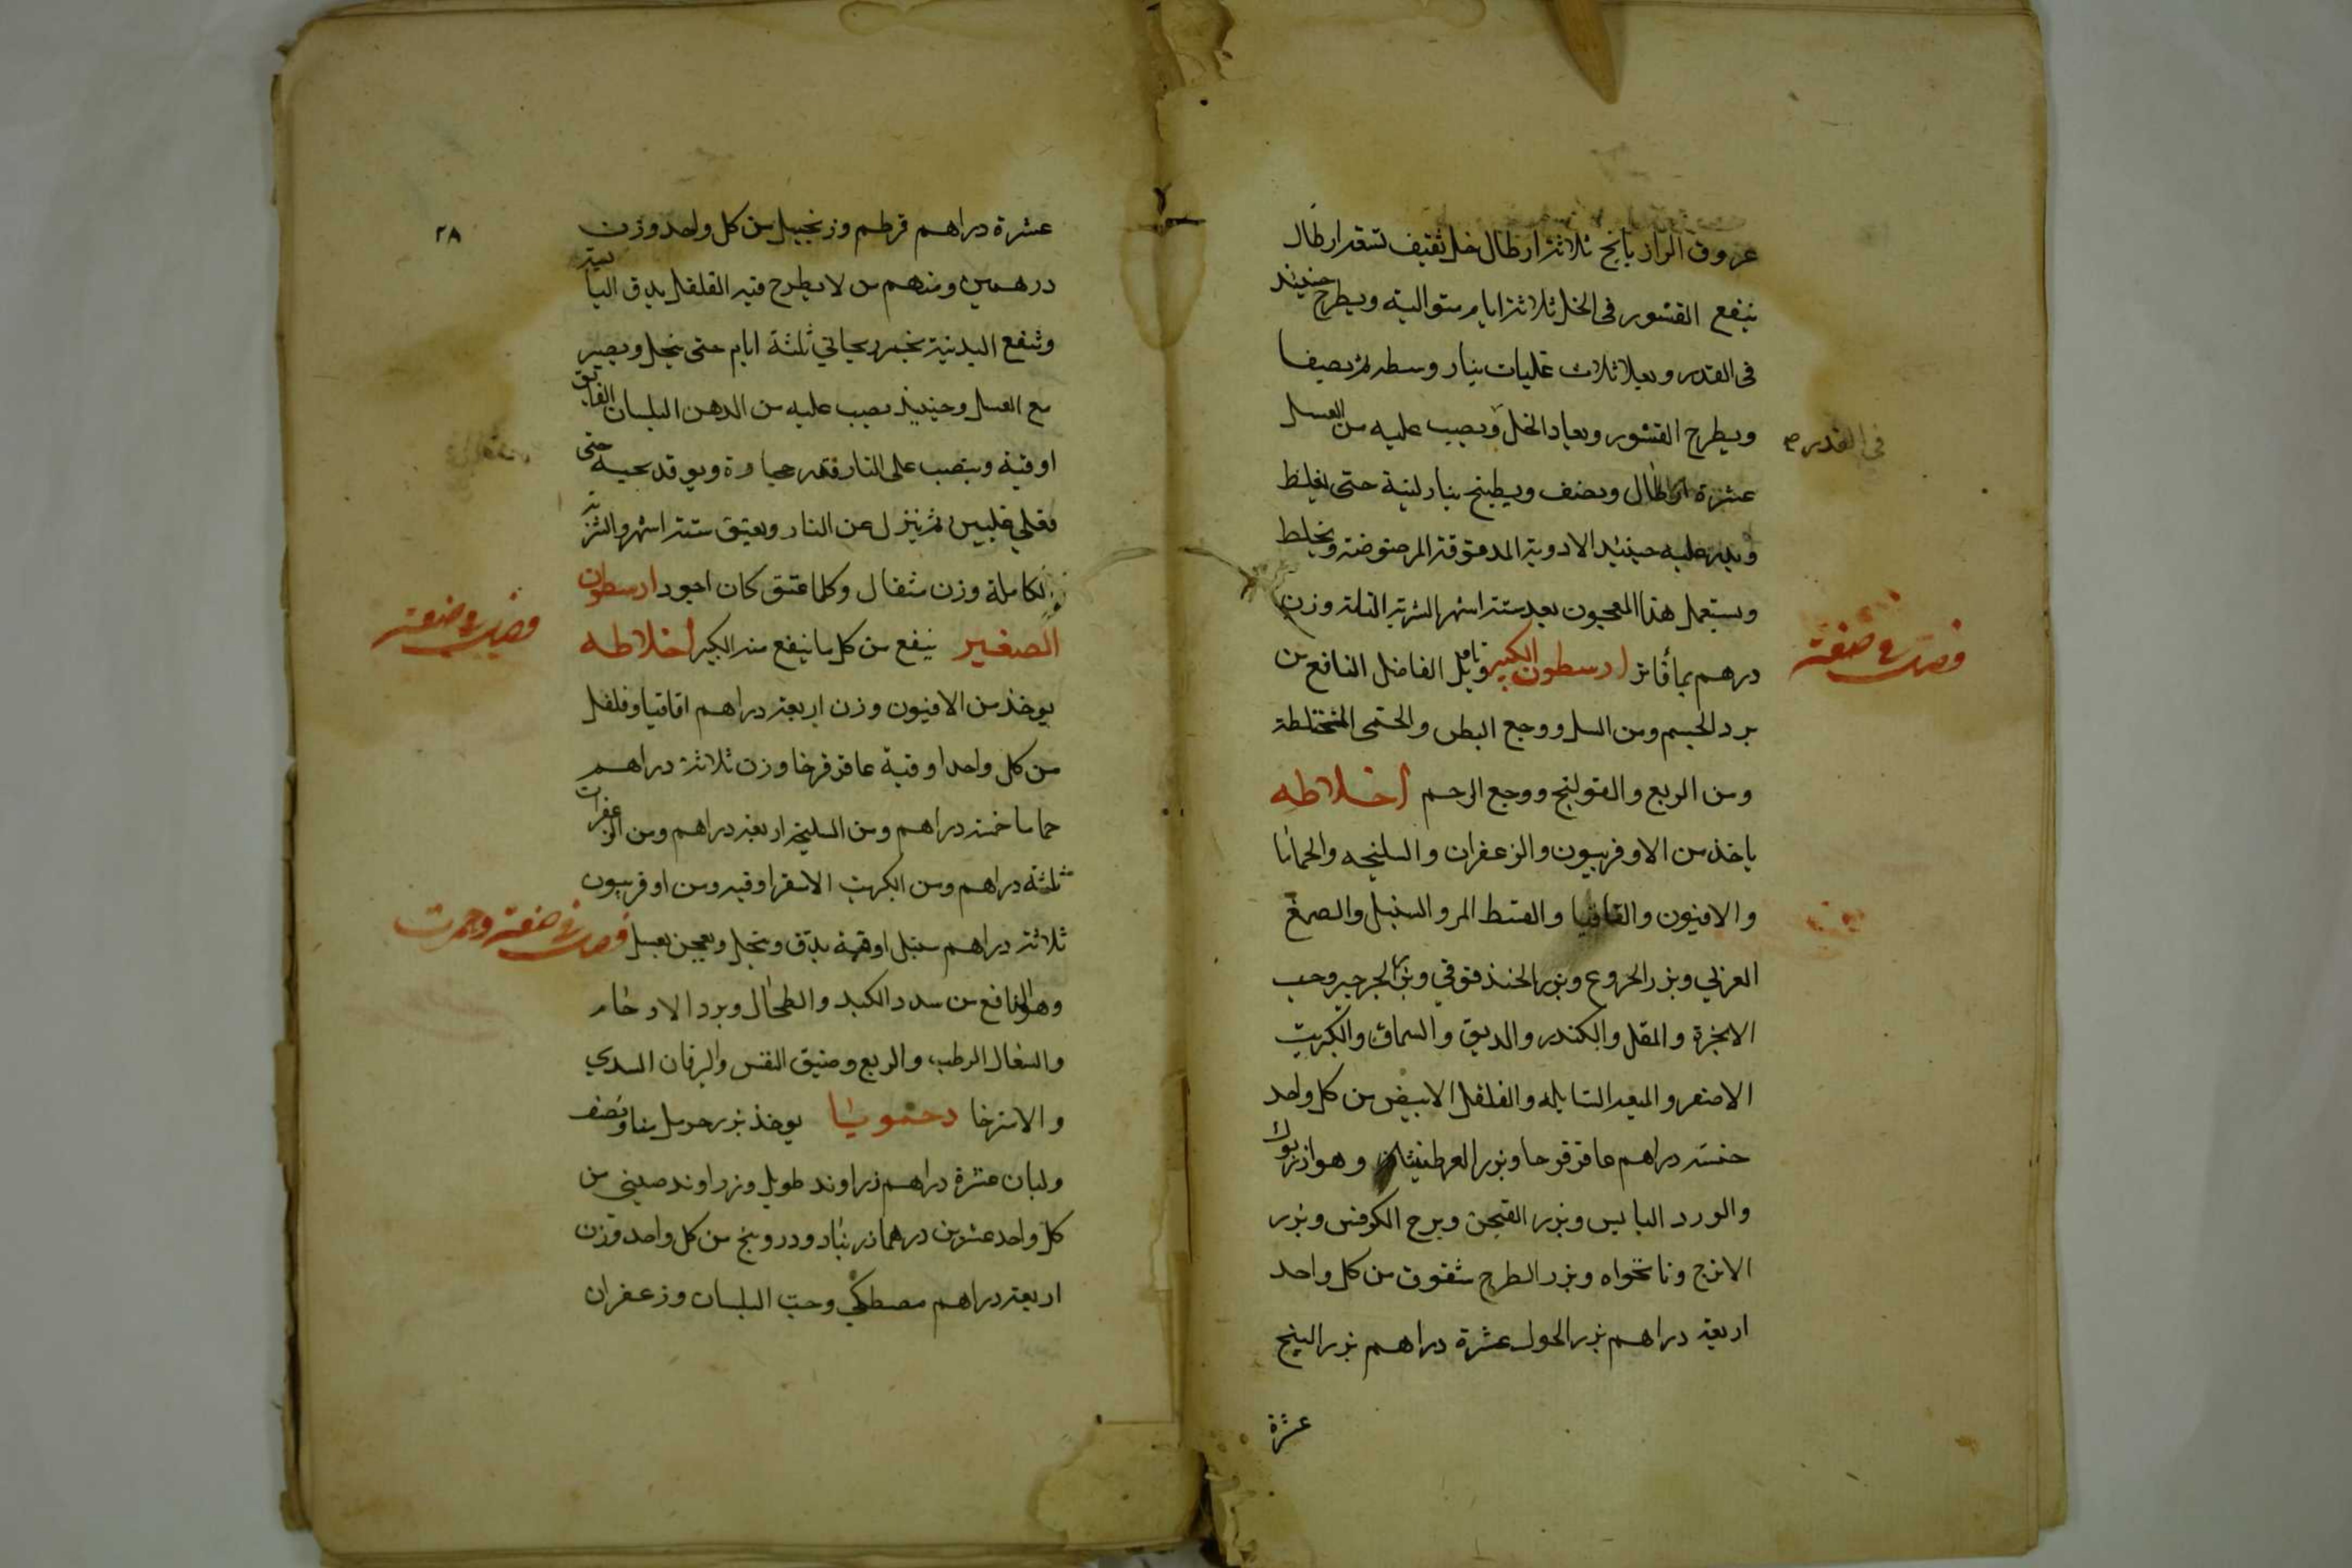 عروق الرازيانج ثلاثة ارطال خل ثقيف تسعة ارطال
ينقع القشور فى الخل ثلاثة ايام متوالية ويطرح حينيذ
فى القدر ويغلا ثلاث غليات بنار وسطه ثم يصفا
ويطرح القشور ويعاد الخل ويصب عليه من العسل
فى القدر
عشرة ارطال ونصف ويطبخ بنار لينة حتى يغلظ
عليه حينئذ الادوية المدقوقة المرضوضة ويخلط
ويستعمل هذا المعجون بعد ستة اشهر الشربة وزن
درهم بما فاتر ارسطون الكبير الفاضل النافع من
فصل فى صنعة
برد الجسم ومن السل ووجع البطن والحمى المختلطة
ومن الربع والقولنج ووجع الرحم اخلاطه
ياخذ من الاوفربيون والزعفران والسليخه والحماما
والافيون والقاقيا والقسط المر والسنبل والصمغ
العربي وبزر الخروع وبزر الحندقوقي وبزر الجرجير وحب
الانجرة والمقل والكندر والدبق والسماق والكبريت
الاصفر والميعه السايله والفلفل الابيض من كل واحد
خمسة دراهم عاقرقرحا وبزر العرطنيثا وهو
والورد اليابس وبزر الكرفس وبزر
الاترج ونانخواه وبزر الطرح شقوق من كل واحد
اربعة دراهم بزر عشرة دراهم بزر البنج
عشرة
٢٨
عشرة دراهم قرطم وزنجبيل من كل واحد وزن
درهمين ومنهم من لا يطرح فيه الفلفل يدق اليابسة
وتنقع بخمر ريحاني ثلثة ايام حتى ينحل ويصير
مع العسل وحينيذ يصب عليه من الدهن البلسان الفايق
اوقية وينصب على النار حتى
يغلي غليتين ثم ينزل عن النار ويعتق ستة اشهر والشربة
الكاملة وزن مثقال وكلما عتق كان اجود ارسطون
الصغير ينفع من كل ما ينفع منه الكبير اخلاطه
فصل فى صنعة
يوخذ من الافيون وزن اربعة دراهم اقاقيا وفلفل
من كل واحد اوقية عاقرقرحا وزن ثلاثة دراهم
حماما خمسة دراهم ومن السليخة اربعة دراهم ومن الزعفران
ثلثة دراهم ومن الكبريت الاصفر اوقيه ومن اوفربيون
ثلاثة دراهم سنبل اوقية يدق وينخل ويعجن بعسل فصل فى صنعة
وهو النافع من سدد الكبد والطحال وبرد الارحام
والسعال الرطب والربع وضيق النفس واليرقان السددي
والاسترخا دحمويا يوخذ بزر حرمل منا ونصف
ولبان عشرة دراهم زراوند طويل وزراوند صيني من
كل واحد عشرين درهما زرنباد ودرونج من كل واحد وزن
اربعة دراهم مصطكي وحب البلسان وزعفران